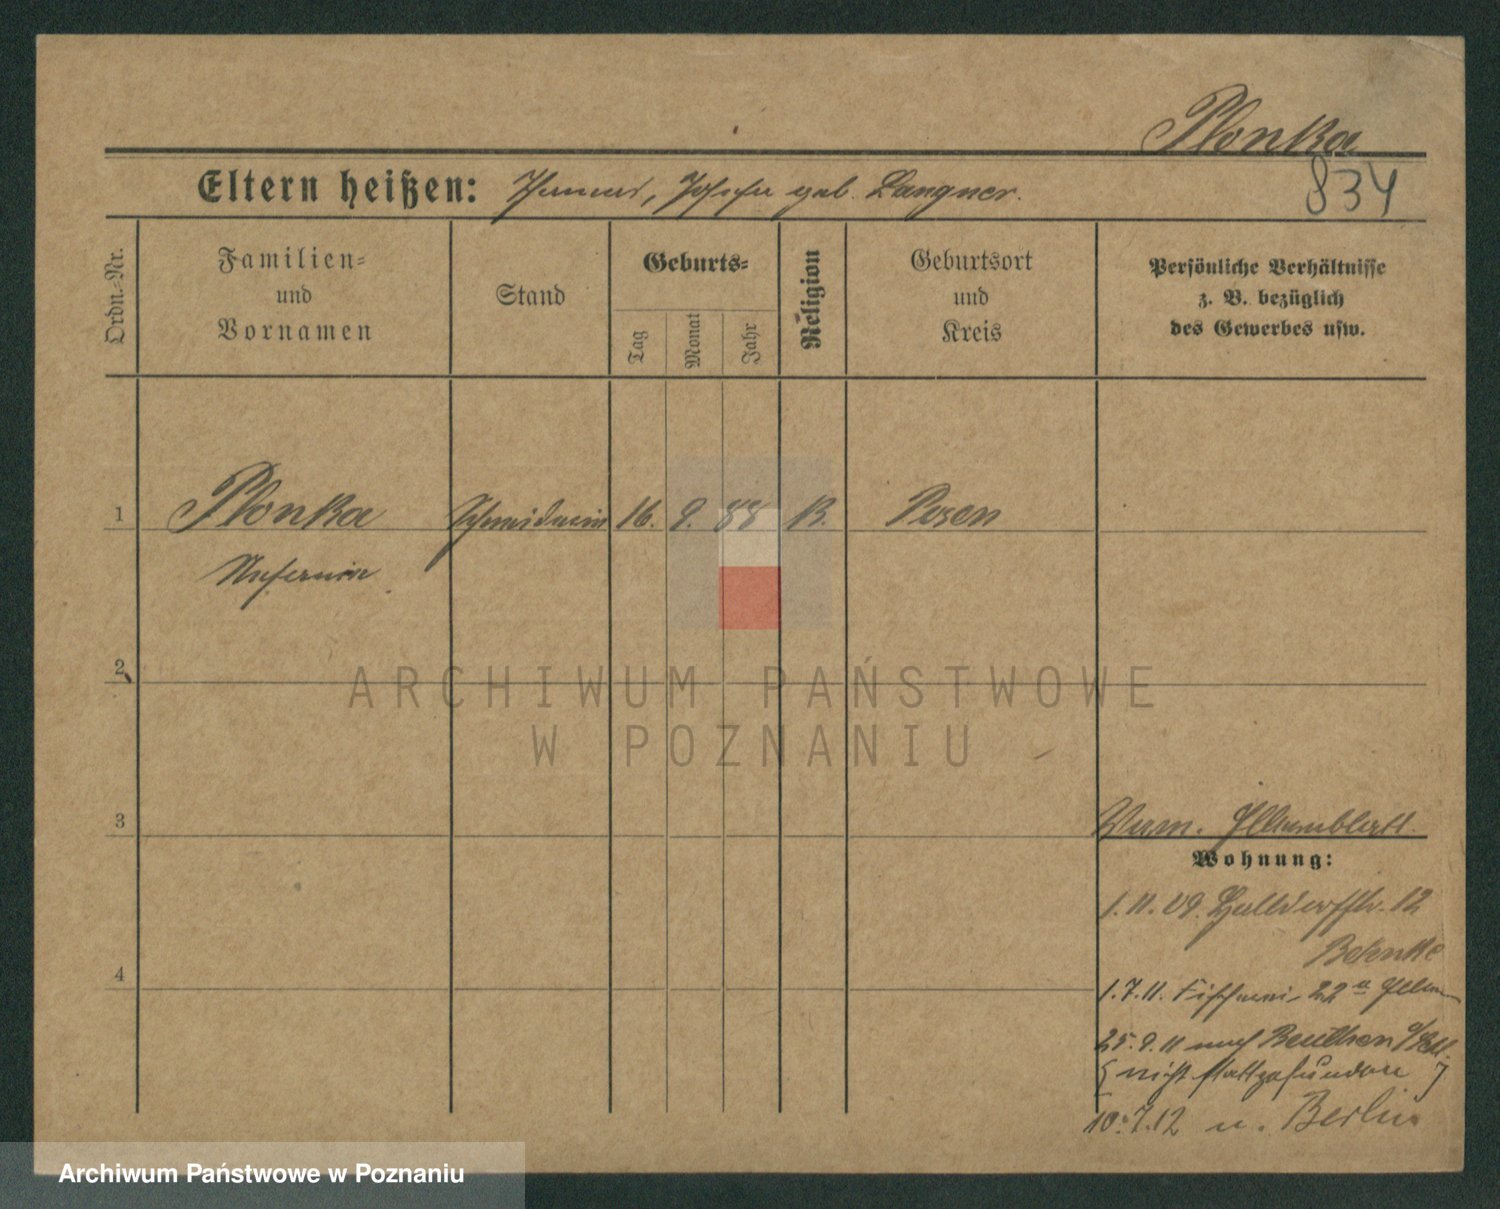 Plonka
834
Eltern heißen: Thomas, Josefa geb. Langner.
Ordn.-Nr.
Familien- und Vornamen
Stand
Geburts-
Tag
Monat
Jahr
Religion
Geburtsort und Kreis
Persönliche Verhältnisse
z. B. bezüglich
des Gewerbes usw.
1 Plonka 16. 9. 88 K. Posen
2
3
4
Wohnung:
1. 11. 09. 12
1.7.11. 22
25.9.11 nach Beuthen
nicht stattgefunden
10.7.12 n. Berlin
ARCHIWUM PAŃSTWOWE
W POZNANIU
Archiwum Państwowe w Poznaniu